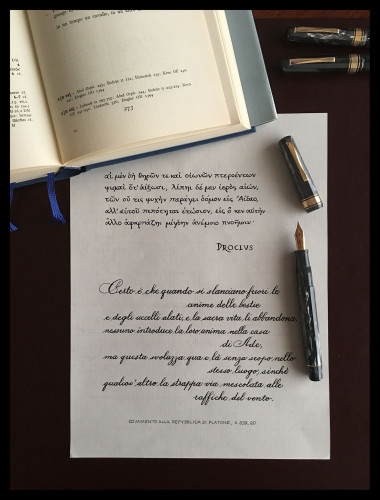 273
αἱ μὲν δὴ θηρῶν τε καὶ οἰωνῶν πτεροέντων
ψυχαὶ ὅτ' ἀίξωσι, λίπηι δέ μιν ἱερὸς αἰών,
τῶν οὔ τις ψυχὴν παράγει δόμον εἰς Ἀίδαο,
ἀλλ' αὐτοῦ πεπότηται ἐτώσιον, εἰς ὅ κεν αὐτὴν
ἄλλο ἀφαρπάζηι μίγδην ἀνέμοιο πνοῆισιν·
PROCLVS
Certo è che quando si slanciano fuori le
anime delle bestie
e degli uccelli alati, e la sacra vita li abbandona,
nessuno introduce la loro anima nella casa
di Ade,
ma questa svolazza qua e là senza scopo nello
stesso luogo, sinché
qualcos'altro la strappa via, mescolata alle
raffiche del vento.
COMMENTO ALLA REPVBBLICA DI PLATONE, II 339, 20